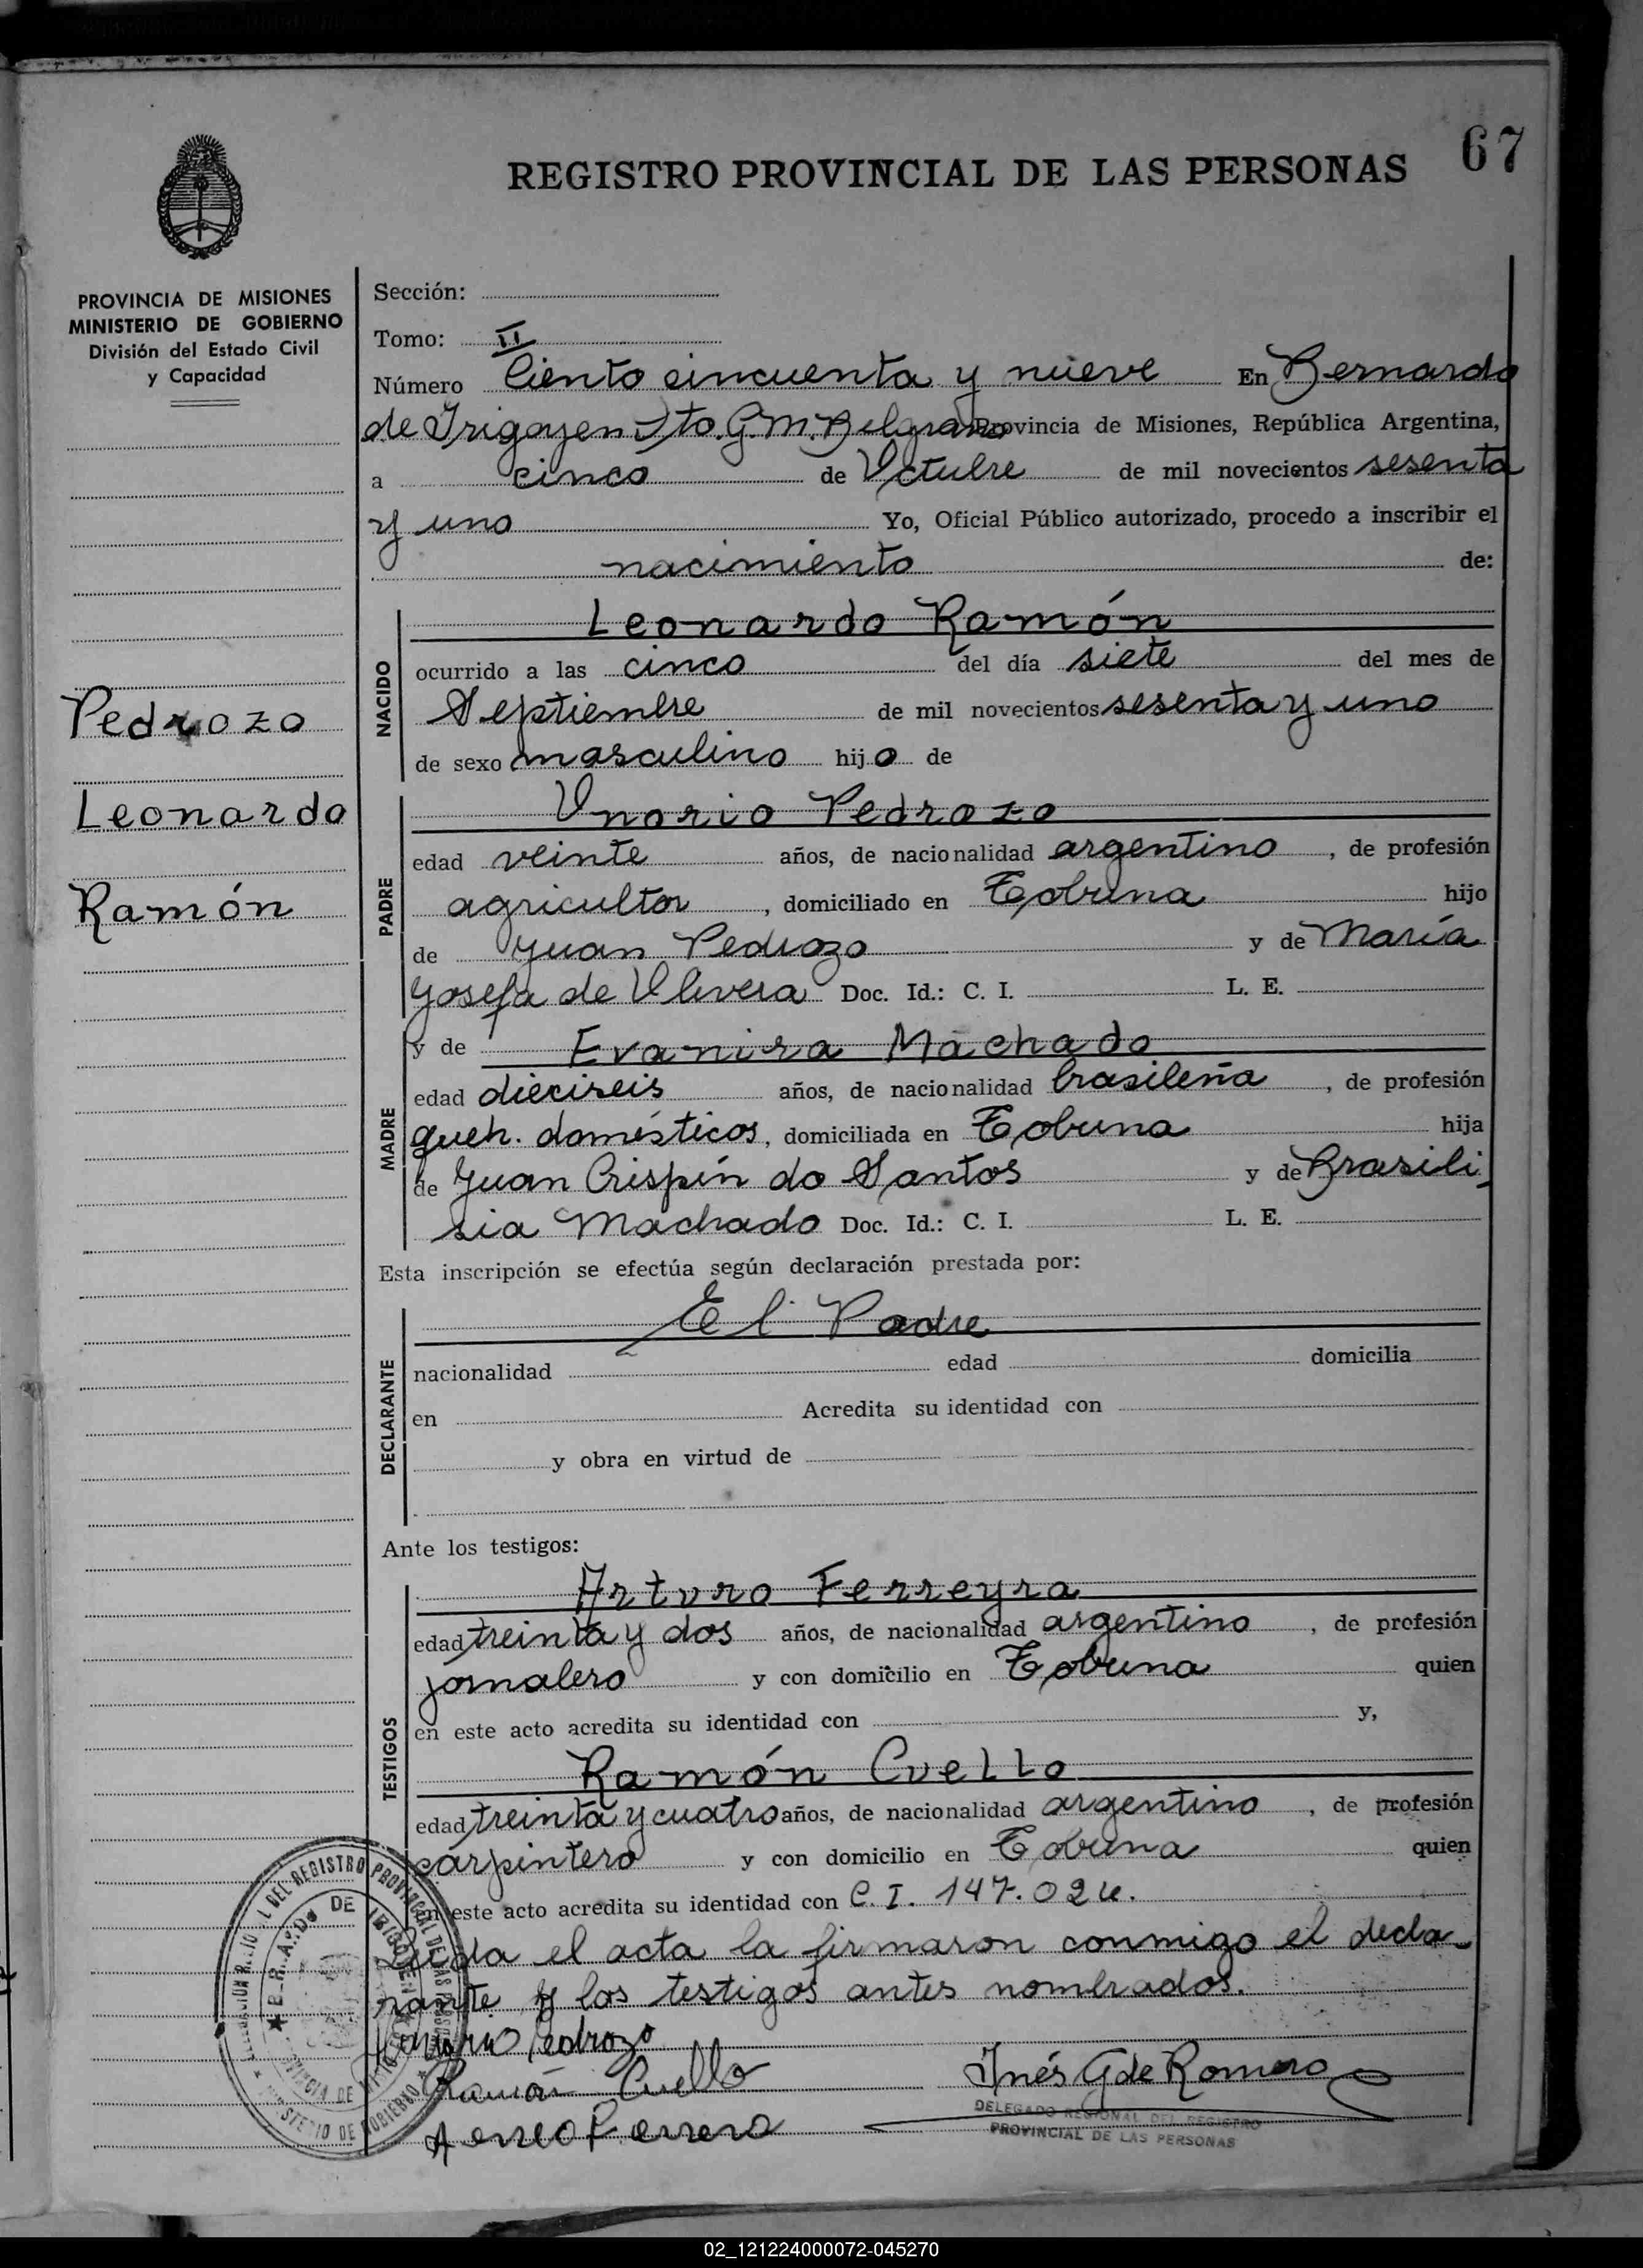 67
REGISTRO PROVINCIAL DE LAS PERSONAS
PROVINCIA DE MISIONES
MINISTERIO DE GOBIERNO
División del Estado Civil
y Capacidad
Pedrozo
Leonardo
Ramón
Sección:
Tomo: II
Número Ciento cincuenta y nueve En Bernardo
de Irigoyen Dto. G. M. Belgrano Provincia de Misiones, República Argentina,
a cinco de Octubre de mil novecientos sesenta
y uno Yo, Oficial Público autorizado, procedo a inscribir el
nacimiento de:
NACIDO
Leonardo Ramón
ocurrido a las cinco del día siete del mes de
Septiembre de mil novecientos sesenta y uno
de sexo masculino hijo de
PADRE
Onorio Pedrozo
edad veinte años, de nacionalidad argentino, de profesión
agricultor, domiciliado en Tobuna hijo
de Juan Pedrozo y de María
Josefa de Olivera Doc. Id.: C. I. L. E.
MADRE
y de Evanira Machado
edad dieciseis años, de nacionalidad brasileña, de profesión
queh. domésticos, domiciliada en Tobuna hija
de Juan Crispín do Santos y de Brasili
sia Machado Doc. Id.: C. I. L. E.
Esta inscripción se efectúa según declaración prestada por:
DECLARANTE
El Padre
nacionalidad edad domicilia
en Acredita su identidad con
y obra en virtud de
Ante los testigos:
TESTIGOS
Arturo Ferreyra
edad treinta y dos años, de nacionalidad argentino, de profesión
jornalero y con domicilio en Tobuna quien
en este acto acredita su identidad con y,
Ramón Cuello
edad treinta y cuatro años, de nacionalidad argentino, de profesión
carpintero y con domicilio en Tobuna quien
en este acto acredita su identidad con C. I. 147.024.
Leída el acta la firmaron conmigo el decla-
rante y los testigos antes nombrados.
Pedrozo
Ramón Cuello
Inés G de Romero
DELEGADO REGIONAL DEL REGISTRO
PROVINCIAL DE LAS PERSONAS
02_121224000072-045270